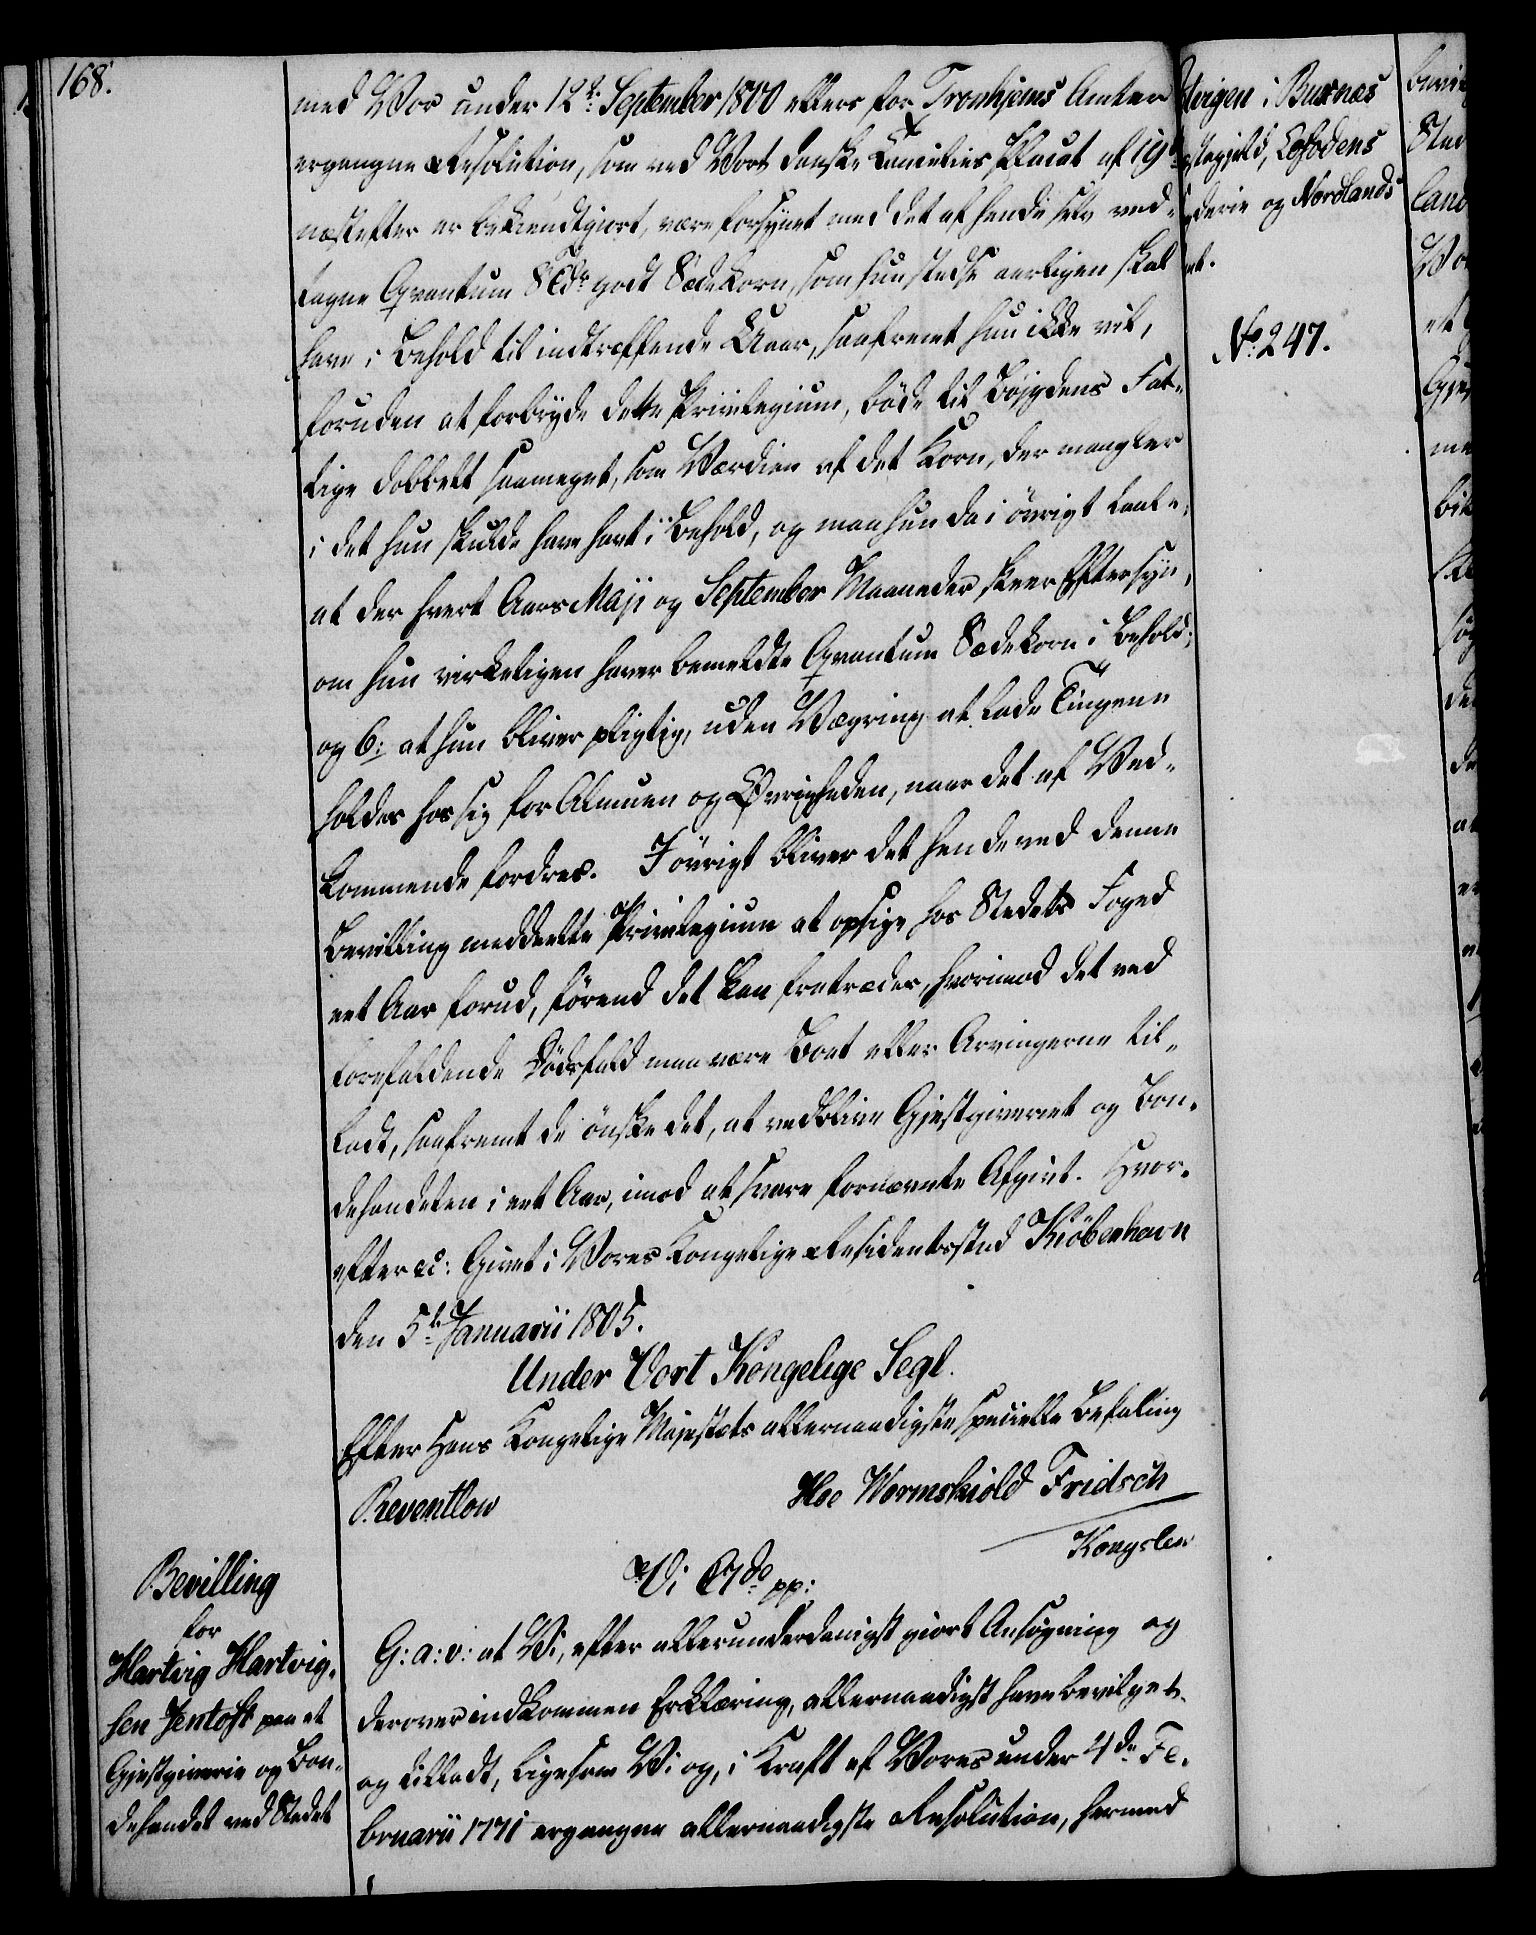 168.
med Vor under 12te September 1800 ellers for Tronhjems Amter
ergangne Resolution, som ved Vort danske Cancelies Placat af 19de
næstefter er bekiendtgiort, være forsynet med det af hende selv ved-
tagne Qvantum 8 Tdr godt Sædekorn, som hun stedse aarligen skal
have i Behold til indtræffende Uaar, saafremt hun ikke vil,
foruden at forbryde dette Privilegium, bøde til Bøjgdens Fat-
tige dobbelt saameget, som Værdien af det Korn, der mangler
i det hun skulde have havt i Behold, og maa hun da i øvrigt taale,
at der hvert Aars Maji og September Maaneder skeer Eftersyn,
om hun virkeligen haver bemeldte Qvantum Sædekorn i Behold;
og 6: at hun bliver pligtig, uden Vægring at lade Tingene
holdes hos sig for Almuen og Øvrigheden, naar det af Ved-
kommende fordres. Iøvrigt bliver det hende ved denne
Bevilling meddeelte Privilegium at opsige hos Stedets Foged
eet Aar forud, førend det kan fratrædes, hvorimod det ved
forefaldende Dødsfald maa være Boet eller Arvingerne til-
ladt, saafremt de ønske det, at vedblive Gjestgiveriet og Bon-
dehandelen i eet Aar, imod at svare fornævnte Afgivt. Hvor-
efter etc: Givet i Vores Kongelige Residentsstad Kiöbenhavn
den 5te Januarii 1805.
Under Vort Kongelige Segl.
Efter Hans Kongelige Majestæts allernaadigste specielle Befaling
Reventlow
Hoe Wormskiold Fridsch
Kongslew
Bevilling
for
Hartvig Hartvig-
sen Jentoft paa et
Gjestgiverie og Bon-
dehandel ved Stedet
Vi C7de pp:
G: a: v: at Vi, efter allerunderdanigst giort Ansøgning og
derover indkommen Erklæring, allernaadigst have bevilget
og tilladt, ligesom Vi og, i Kraft af Vores under 4de Fe-
bruarii 1771 ergangne allernaadigste Resolution, hermed
i Buxnæs
Lofodens
og Nordlands
No 247.